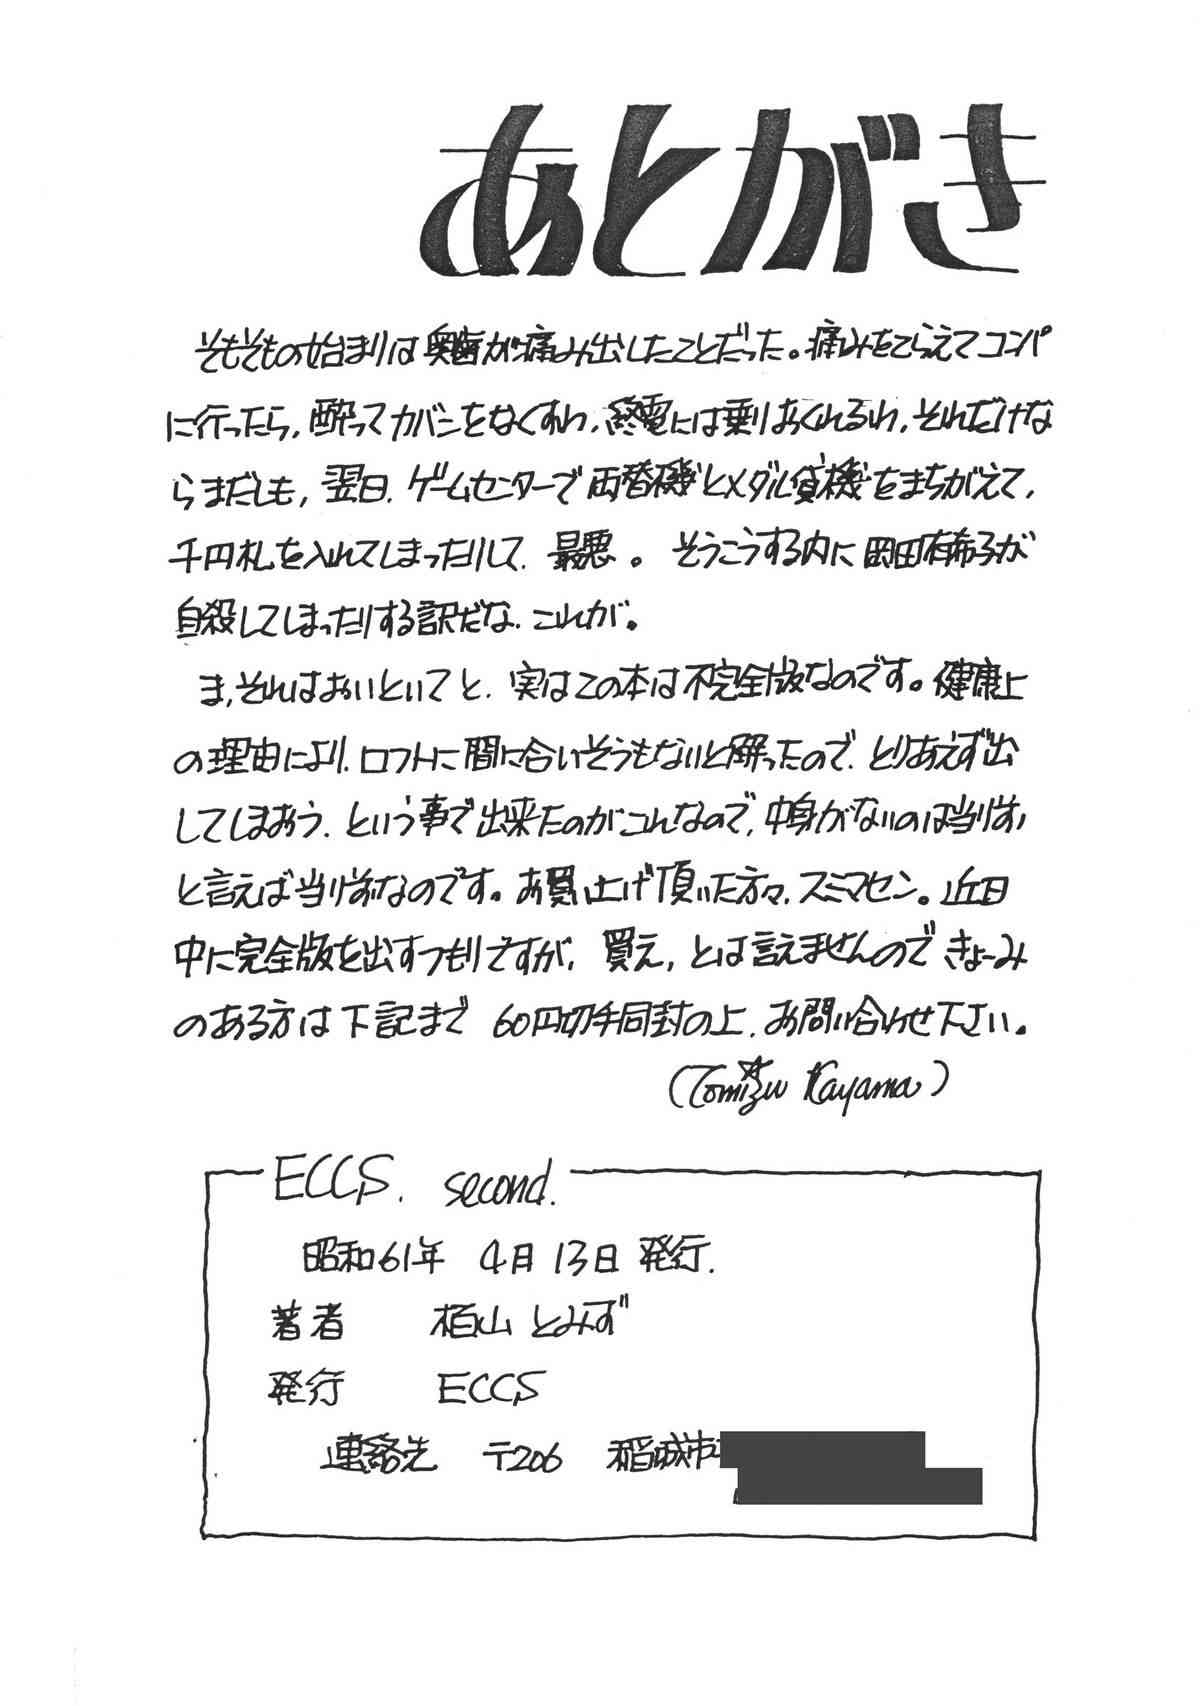 あとがき
そもそもの始まりは奥歯が痛み出したことだった。痛みをこらえてコンパ
に行ったら，酔ってカバンをなくすわ，終電には乗りおくれるわ，それだけな
らまだしも，翌日，ゲームセンターで両替機とメダル貸機をまちがえて，
千円札を入れてしまったりして，最悪。そうこうする内に岡田有希子が
自殺してしまったりする訳だな，これが。
ま，それはおいといてと，実はこの本は不完全版なのです。健康上
の理由により，ロフトに間に合いそうもないと解ったので，とりあえず出
してしまおう，という事で出来たのがこんなので，中身がないのは当り前
と言えば当り前なのです。お買い上げ頂いた方々，スミマセン。近日
中に完全版を出すつもりですが，買え，とは言えませんのできょーみ
のある方は下記まで 60円切手同封の上，お問い合わせ下さい。
(Tomizu Kayama)
ECCS. second.
昭和61年 4月13日発行.
著者 栢山とみず
発行 ECCS
連絡先 〒206 稲城市